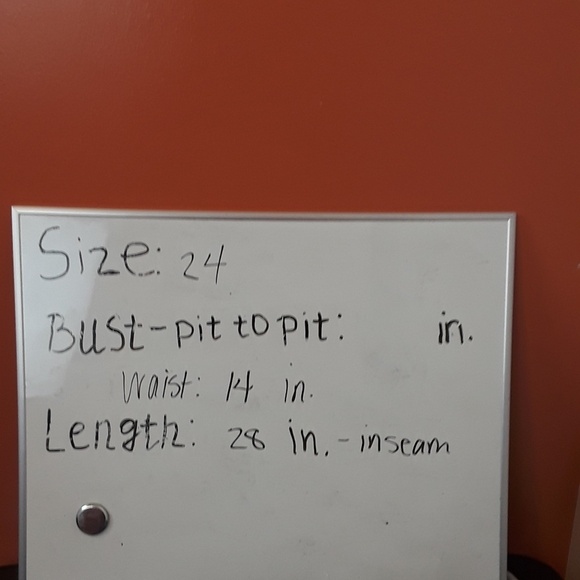 Size: 24
Bust-pit to pit: in.
Waist: 14 in.
Length: 28 in. - inseam